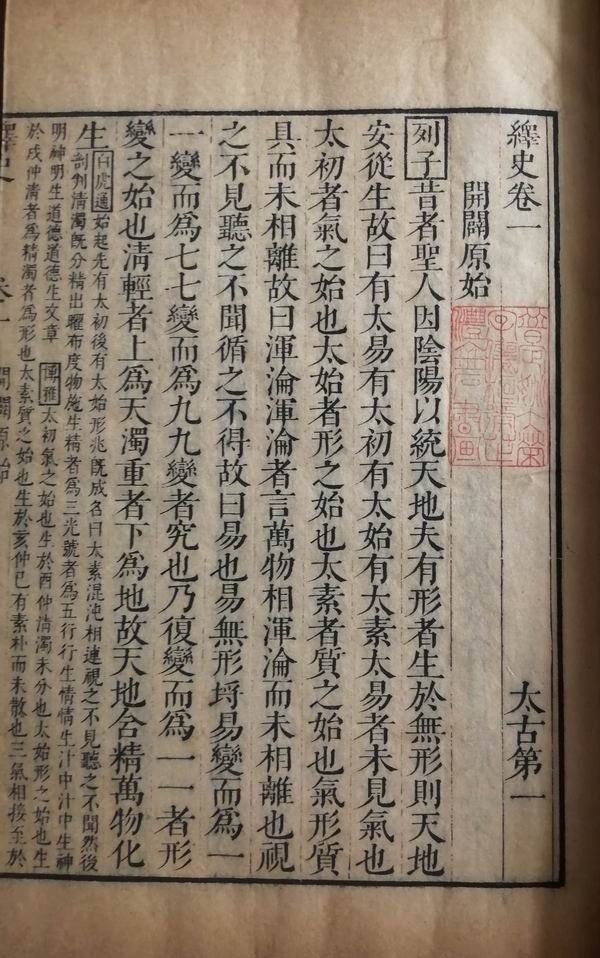 繹史卷一　太古第一
開闢原始
列子昔者聖人因陰陽以統天地夫有形者生於無形則天地
安從生故曰有太易有太初有太始有太素太易者未見氣也
太初者氣之始也太始者形之始也太素者質之始也氣形質
具而未相離故曰渾淪渾淪者言萬物相渾淪而未相離也視
之不見聽之不聞循之不得故曰易也易無形埒易變而爲一
一變而爲七七變而爲九九變者究也乃復變而爲一一者形
變之始也淸輕者上爲天濁重者下爲地故天地含精萬物化
生
白虎通始起先有太初後有太始形兆既成名曰太素混沌相連視之不見聽之不聞然後
剖判清濁既分精出曜布度物施生精者爲三光號者爲五行行生情情生汁中汁中生神
明神明生道德道德生文章　博雅太初氣之始也生於酉仲清濁未分也太始形之始也生
於戌仲清者爲精濁者爲形也太素質之始也生於亥仲已有素朴而未散也三氣相接至於
繹史　卷一　開闢原始